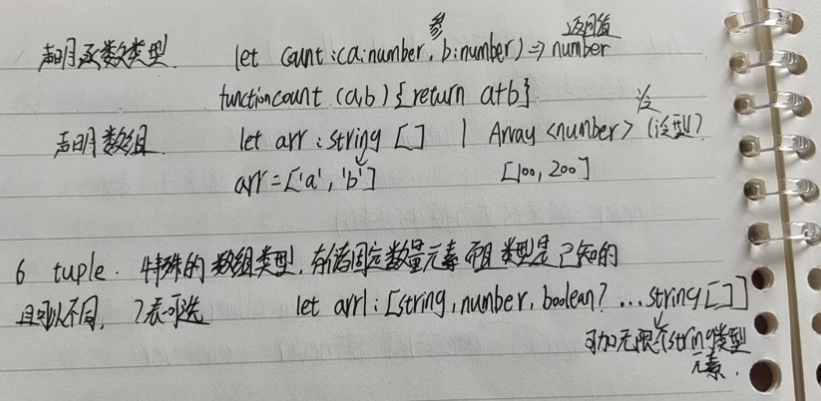 参 返回值
声明函数类型 let count:(a:number, b:number)=> number
function count (a,b) {return a+b}
声明数组 let arr : string [] | Array <number> (泛型)
arr = ['a', 'b'] [100, 200]
6 tuple. 特殊的数组类型, 存储固定数量元素 而且 类型是已知的
且可以不同, ?表可选 let arr1: [string, number, boolean? ...string[]]
可加无限个string类型
元素.